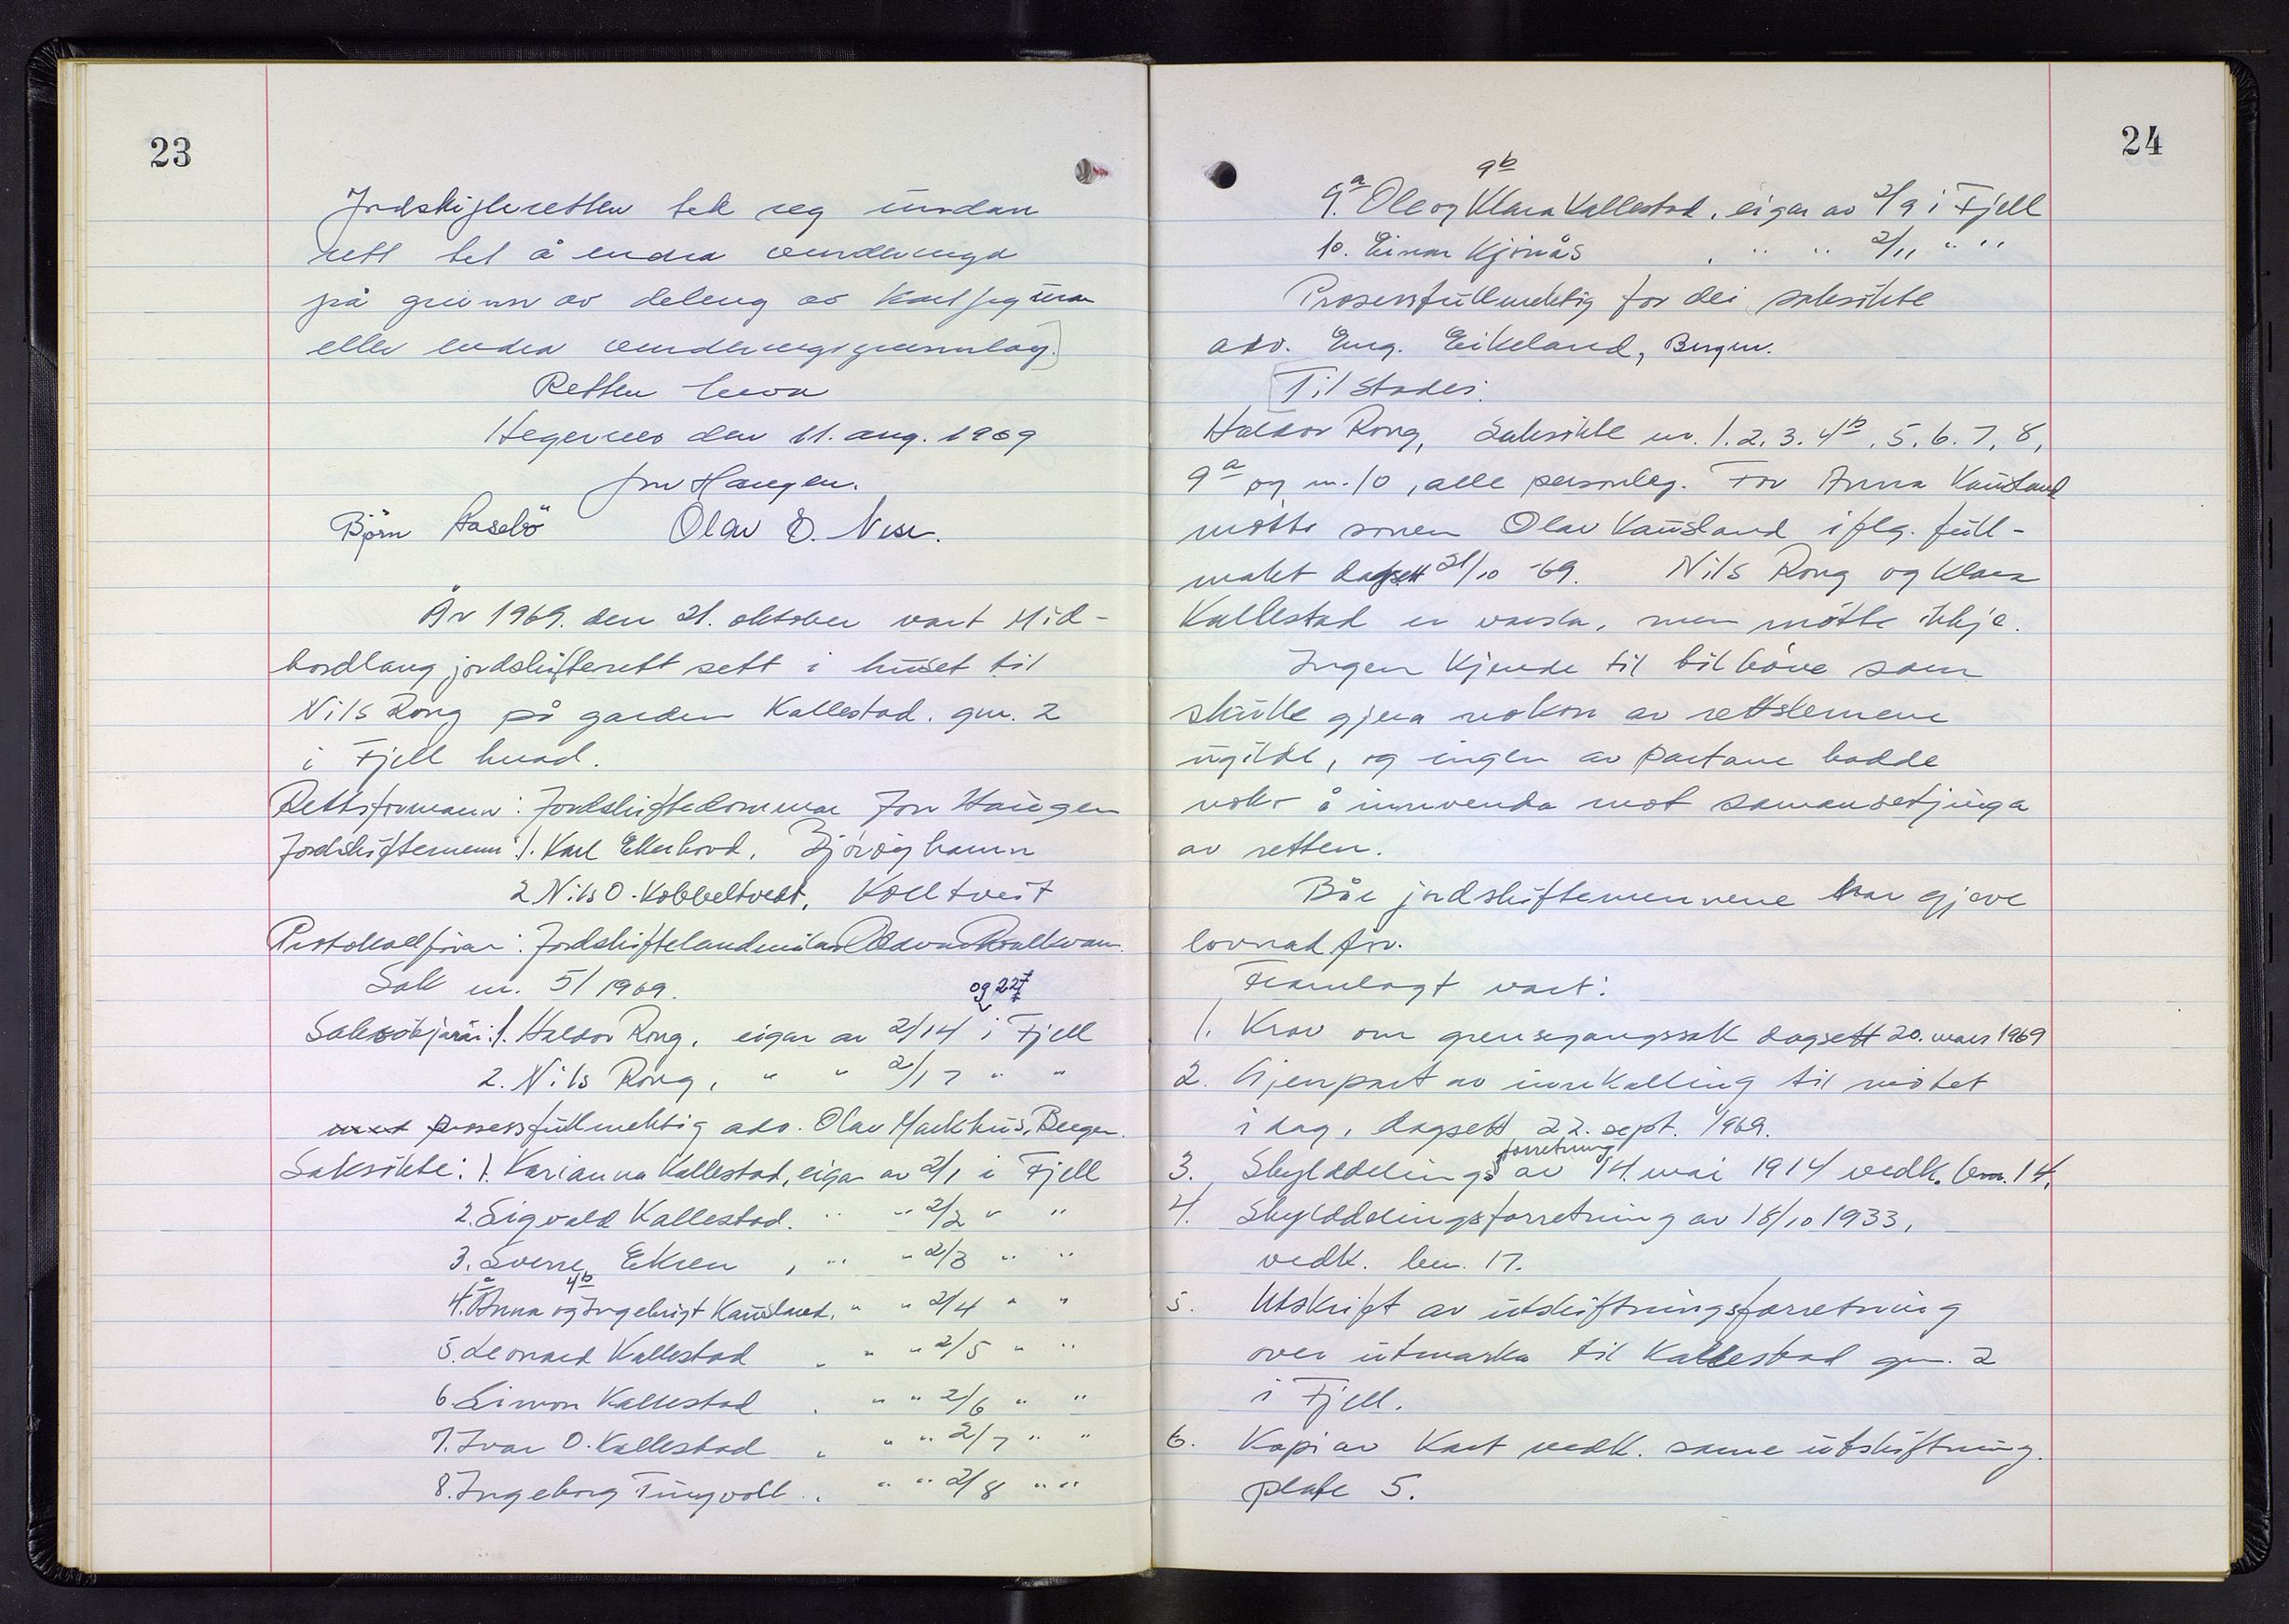 23
Jordskifteretten tek seg undan
rett til å endra verderinga
på grunn av deling av
eller endra verderingsgrunnlag.
Retten heva
Hegernes den 11. aug. 1969
Jon Haugen.
Björn Aasebö Olav O. Nese.
År 1969. den 21. oktober vart Mid-
hordland jordskifterett sett i huset til
Nils Rong på garden Kallestad. gnr. 2
i Fjell herad.
Rettsformann: Jordskiftedommar Jon Haugen
Jordskiftemenn: 1. Karl Ekerhovd, Bjørøyhamn
2. Nils O. Kobbeltvedt, Kolltveit
Protokollförar: Jordskiftelandmålar
Sak nr. 5/1969.
og 227
Saksökjarar: 1. Haldor Rong, eigar av 2/14 i Fjell
2. Nils Rong, " " 2/17 " "
med prosessfullmektig adv. Olav Markhus, Bergen.
Saksökte: 1. Karianna Kallestad, eigar av 2/1 i Fjell
2. Sigvald Kallestad. " " 2/2 " "
3. Sverre Ekren , " " 2/3 " "
4.a Anna og 4b Ingebrigt Kausland. " " 2/4 " "
5. Leonard Kallestad , " " 2/5 " "
6. Simon Kallestad . " " 2/6 " "
7. Ivar O. Kallestad , " " 2/7 " "
8. Ingeborg Tungvoll . , " " 2/8 " "
24
9.a Ole og 9b Klara Kallestad, eigar av 2/9 i Fjell
10. Einar Kjönås , " " 2/11 " "
Prosessfullmektig for dei saksökte
adv. Eng. Eikeland, Bergen.
Til stades:
Haldor Rong, Saksökte nr. 1. 2. 3. 4b, 5. 6. 7. 8,
9a og nr. 10, alle personleg. For Anna Kausland
mötte sonen Olav Kausland iflg. full-
makt dagsett 21/10 -69. Nils Rong og Klara
Kallestad er varsla, men mötte ikkje.
Ingen kjende til tilhöve som
skulle gjera nokon av rettslemene
ugilde, og ingen av partane hadde
noko å innvenda mot samansetjinga
av retten.
Båe jordskiftemennene har gjeve
lovnad för.
Framlagt vart:
1. Krav om grensegangssak dagsett 20. mars 1969
2. Gjenpart av innkalling til mötet
i dag, dagsett 22. sept. 1969.
3. Skylddelingsforretning av 14. mai 1914 vedk. bnr. 14.
4. Skylddelingsforretning av 18/10 1933,
vedk. bnr. 17.
5. Utskrift av utskiftningsforretning
over utmarka til Kallestad gnr. 2
i Fjell.
6. Kopi av kart vedk. same utskiftning.
plate 5.